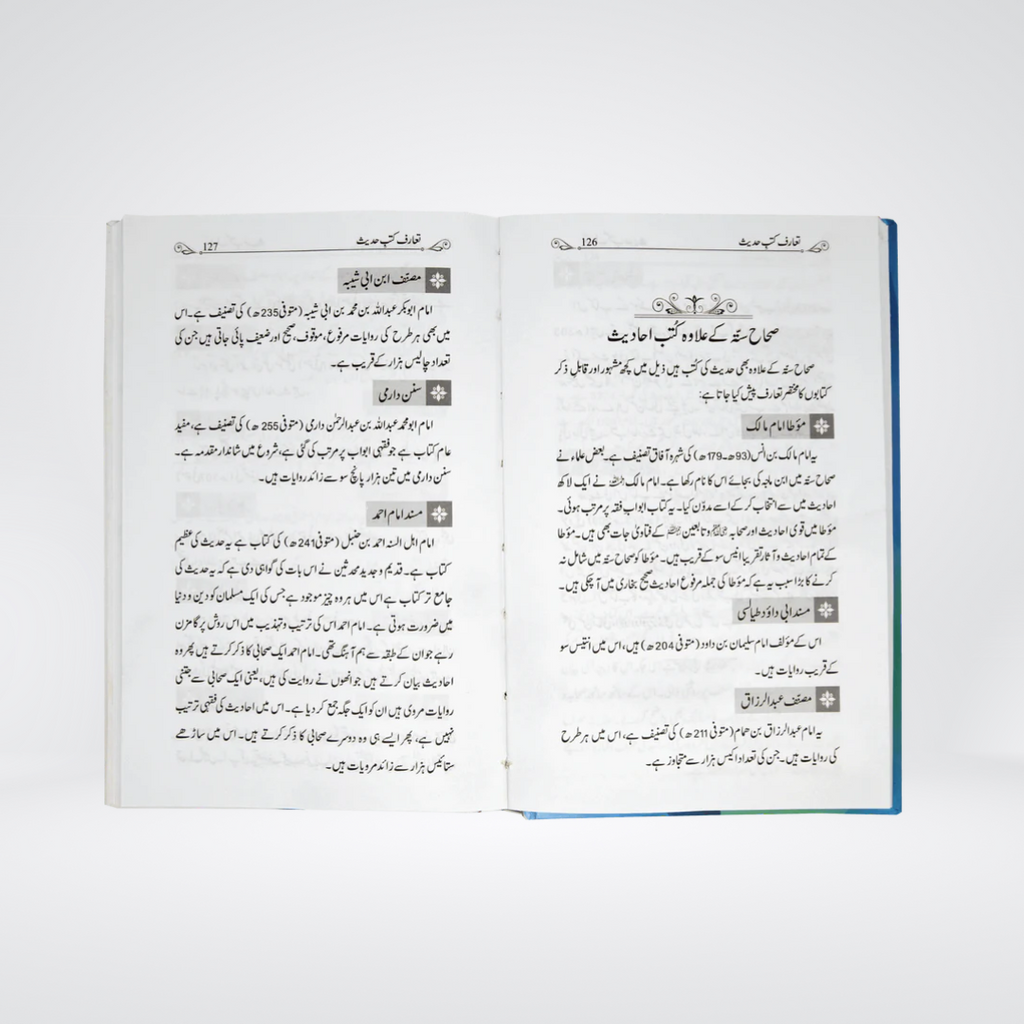 تعارف کتب حدیث 126
صحاح ستّہ کے علاوہ کُتب احادیث
صحاح ستّہ کے علاوہ بھی حدیث کی کُتب ہیں ذیل میں کچھ مشہور اور قابلِ ذکر
کتابوں کا مختصر تعارف پیش کیا جاتا ہے:
مؤطا امام مالک
یہ امام مالک بن انس (93ھ-179ھ) کی شہرہ آفاق تصنیف ہے۔ بعض علماء نے
صحاح ستّہ میں ابن ماجہ کی بجائے اس کا نام رکھا ہے۔ امام مالک رحمہ اللہ نے ایک لاکھ
احادیث میں سے انتخاب کر کے اسے مدوّن کیا۔ یہ کتاب ابواب فقہ پر مرتب ہوئی۔
مؤطا میں قوی احادیث اور صحابہ وتابعین کے فتاویٰ جات بھی ہیں۔ مؤطا
کے تمام احادیث و آثار تقریبا انیس سو کے قریب ہیں۔ مؤطا کو صحاح ستّہ میں شامل نہ
کرنے کا بڑا سبب یہ ہے کہ مؤطا کی جملہ مرفوع احادیث صحیح بخاری میں آچکی ہیں۔
مسند ابی داؤد طیالسی
اس کے مؤلف امام سلیمان بن داود (متوفی 204ھ) ہیں، اس میں انتیس سو
کے قریب روایات ہیں۔
مصنّف عبدالرزاق
یہ امام عبدالرزاق بن ہمام (متوفی 211ھ) کی تصنیف ہے، اس میں ہر طرح
کی روایات ہیں۔ جن کی تعداد اکیس ہزار سے متجاوز ہے۔
تعارف کتب حدیث 127
مصنّف ابن ابی شیبہ
امام ابوبکر عبداللہ بن محمد بن ابی شیبہ (متوفی 235ھ) کی تصنیف ہے۔ اس
میں بھی ہر طرح کی روایات مرفوع، موقوف، صحیح اور ضعیف پائی جاتی ہیں جن کی
تعداد چالیس ہزار کے قریب ہے۔
سنن دارمی
امام ابومحمد عبداللہ بن عبدالرحمٰن دارمی (متوفی 255ھ) کی تصنیف ہے، مفید
عام کتاب ہے جو فقہی ابواب پر مرتب کی گئی ہے، شروع میں شاندار مقدمہ ہے۔
سنن دارمی میں تین ہزار پانچ سو سے زائد روایات ہیں۔
مسند امام احمد
امام اہل السنہ احمد بن حنبل (متوفی 241ھ) کی کتاب ہے یہ حدیث کی عظیم
کتاب ہے۔ قدیم و جدید محدثین نے اس بات کی گواہی دی ہے کہ یہ حدیث کی
جامع تر کتاب ہے اس میں ہر وہ چیز موجود ہے جس کی ایک مسلمان کو دین و دنیا
میں ضرورت ہوتی ہے۔ امام احمد اس کی ترتیب و تہذیب میں اس روش پر گامزن
رہے جو ان کے طبقہ سے ہم آہنگ تھی۔ امام احمد ایک صحابی کا ذکر کرتے ہیں پھر وہ
احادیث بیان کرتے ہیں جو انھوں نے روایت کی ہیں، یعنی ایک صحابی سے جتنی
روایات مروی ہیں ان کو ایک جگہ جمع کر دیا ہے۔ اس میں احادیث کی فقہی ترتیب
نہیں ہے، پھر ایسے ہی وہ دوسرے صحابی کا ذکر کرتے ہیں۔ اس میں ساڑھے
ستائیس ہزار سے زائد مرویات ہیں۔